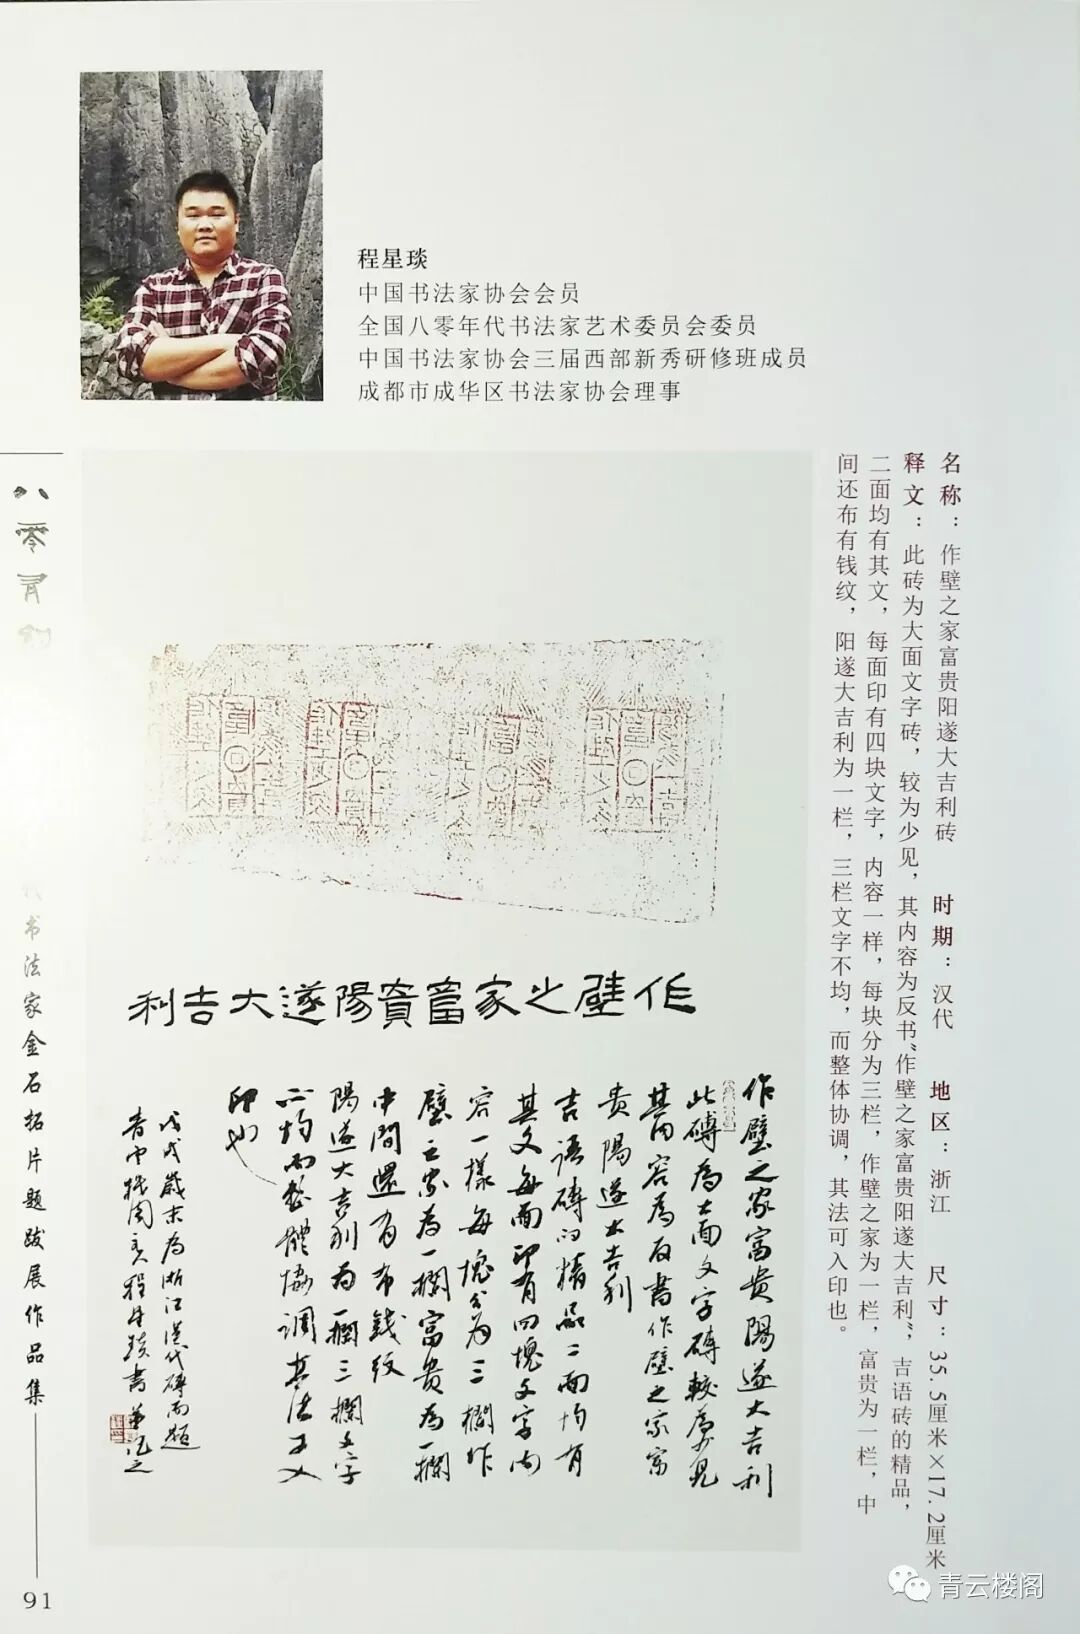 程星琰
中国书法家协会会员
全国八零年代书法家艺术委员会委员
中国书法家协会三届西部新秀研修班成员
成都市成华区书法家协会理事
名称：作壁之家富贵阳遂大吉利砖 时期：汉代 地区：浙江 尺寸：35.5厘米×17.2厘米
释文：此砖为大面文字砖，较为少见，其内容为反书“作壁之家富贵阳遂大吉利”，吉语砖的精品，
二面均有其文，每面印有四块文字，内容一样，每块分为三栏，作壁之家为一栏，富贵为一栏，中
间还布有钱纹，阳遂大吉利为一栏，三栏文字不均，而整体协调，其法可入印也。
作壁之家富貴陽遂大吉利
作壁之家富贵陽遂大吉利
此磚為大面文字磚較為少見
其内容為反書作壁之家富
贵陽遂大吉利
吉语磚的精品二面均有
其文每面印有四塊文字内
容一樣每塊分为三欄作
壁之家為一欄富贵為一欄
中間還有布錢纹
陽遂大吉利为一欄三欄文字
不均而整體協调其法可入
印也
戊戌歲末為浙江漢代磚而題
八零
代书法家金石拓片题跋展作品集
91
青云楼阁